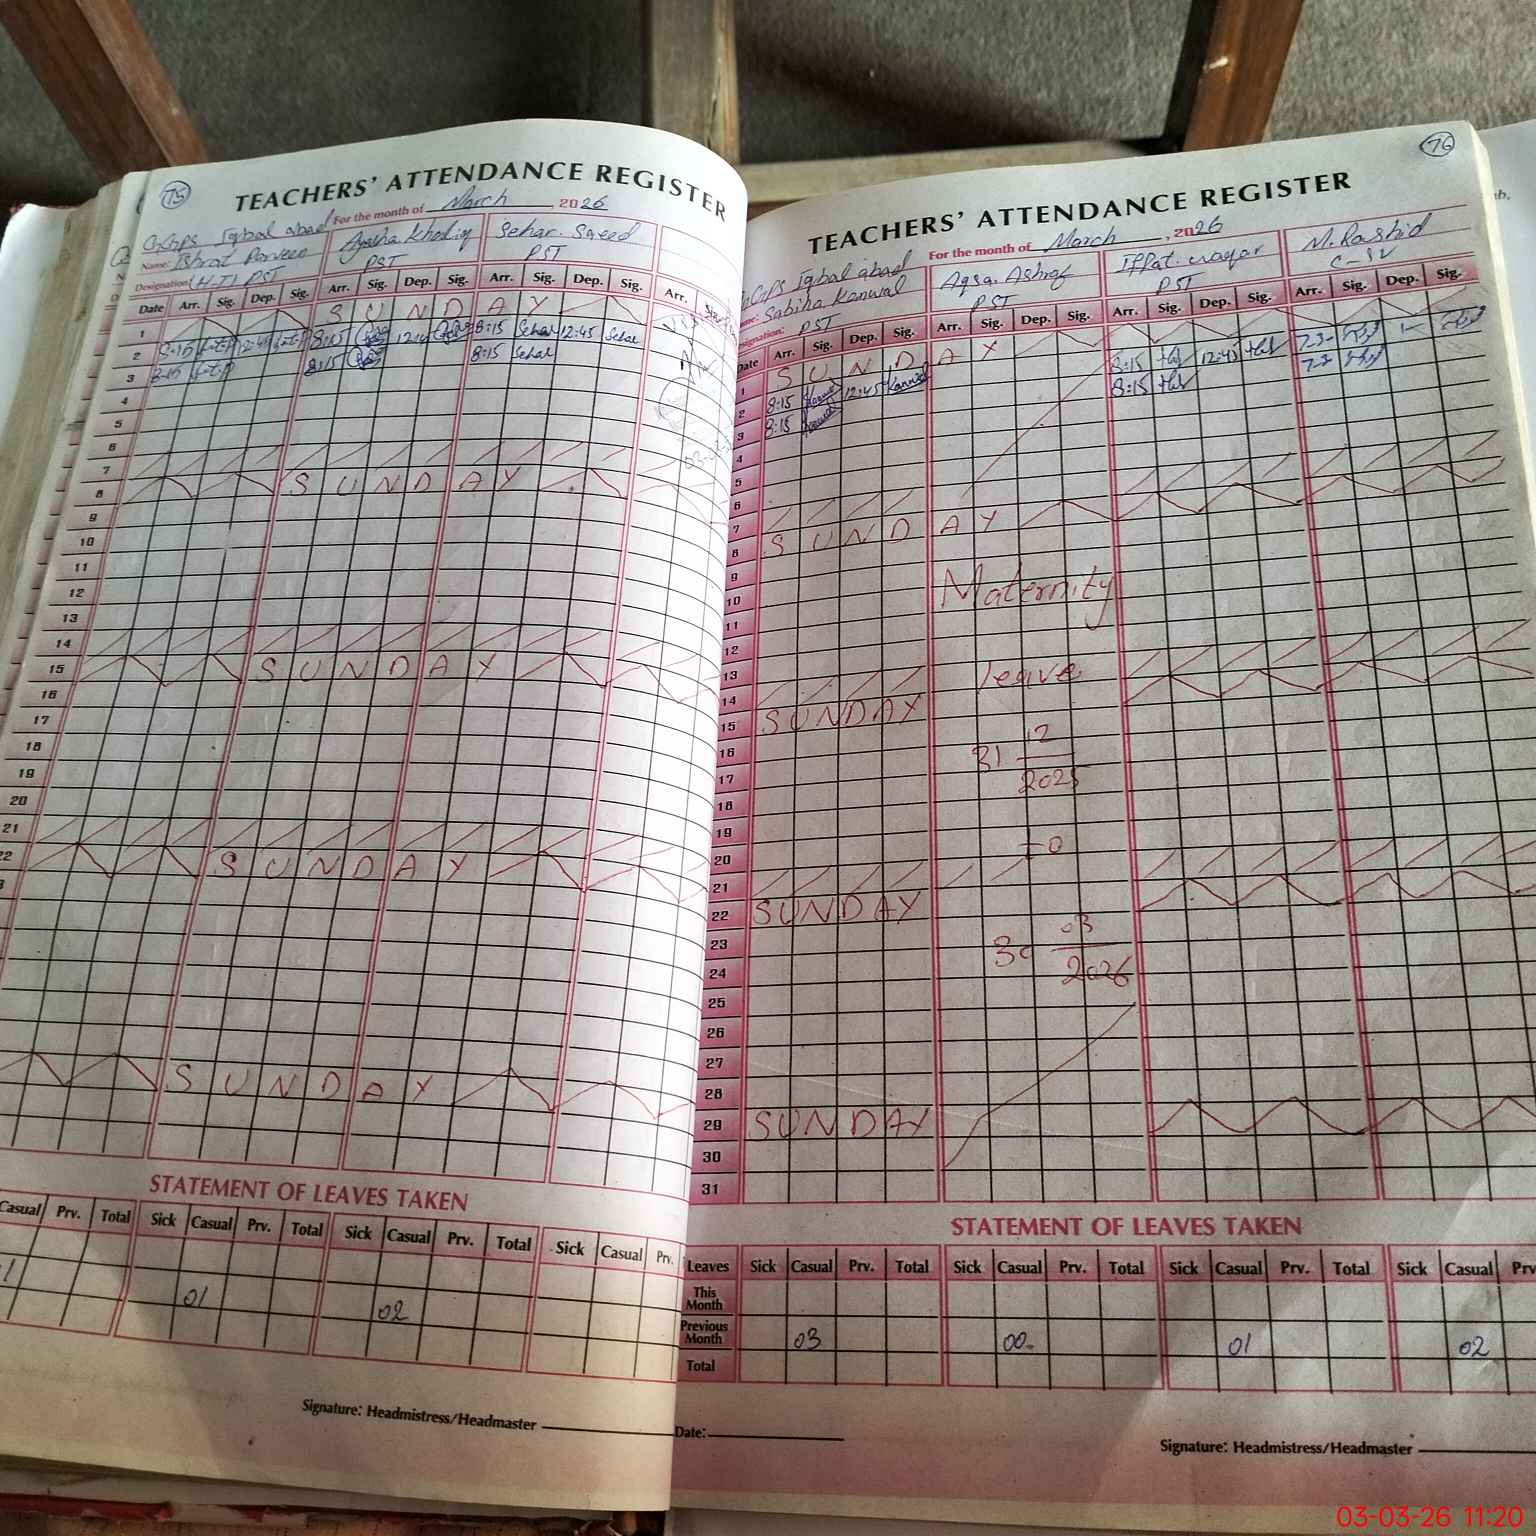 75
TEACHERS' ATTENDANCE REGISTER
For the month of March, 2026
GGPS Iqbal abad
Name: Ishrat Parveen
Ayesha Khaliq
Sehar Saeed
Designation: (H.T) PST
PST
PST
Date Arr. Sig. Dep. Sig. Arr. Sig. Dep. Sig. Arr. Sig. Dep. Sig. Arr.
1 SUNDAY
2 8:15 12:45 8:15 8:15 Sehar 12:45 Sehar
3 8:15 8:15 8:15 Sehar
4
5
6
7
8 SUNDAY
9
10
11
12
13
14
15 SUNDAY
16
17
18
19
20
21
22 SUNDAY
SUNDAY
STATEMENT OF LEAVES TAKEN
Casual Prv. Total Sick Casual Prv. Total Sick Casual Prv. Total Sick Casual Prv.
01 02
Signature: Headmistress/Headmaster
76
TEACHERS' ATTENDANCE REGISTER
For the month of March, 2026
GGPS Iqbal abad
Name: Sabiha Kanwal
Aqsa Ashraf
Iffat
M. Rashid
Designation: PST
PST
PST
C-IV
Date Arr. Sig. Dep. Sig. Arr. Sig. Dep. Sig. Arr. Sig. Dep. Sig. Arr. Sig. Dep. Sig.
1 SUNDAY
2 8:15 Kanwal 12:45 Kanwal 8:15 12:45
3 8:15 Kanwal 8:15
4
5
6
7
8 SUNDAY
9
10 Maternity
11
12
13
14 leave
15 SUNDAY
16
17 31 12/2025
18
19
20 To
21
22 SUNDAY
23
24 30 03/2026
25
26
27
28
29 SUNDAY
30
31
STATEMENT OF LEAVES TAKEN
Leaves Sick Casual Prv. Total Sick Casual Prv. Total Sick Casual Prv. Total Sick Casual
This Month
Previous Month 03 00 01 02
Total
Date:
Signature: Headmistress/Headmaster
03-03-26 11:20